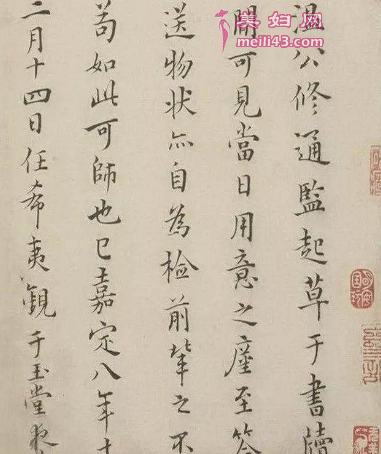 美妇网
meili43.com
温公修通監起草于書牘
間可見當日用意之廑至答
送物状亦自為檢前輩之不
苟如此可師也已嘉定八年十
二月十四日任希夷觀于玉堂夜